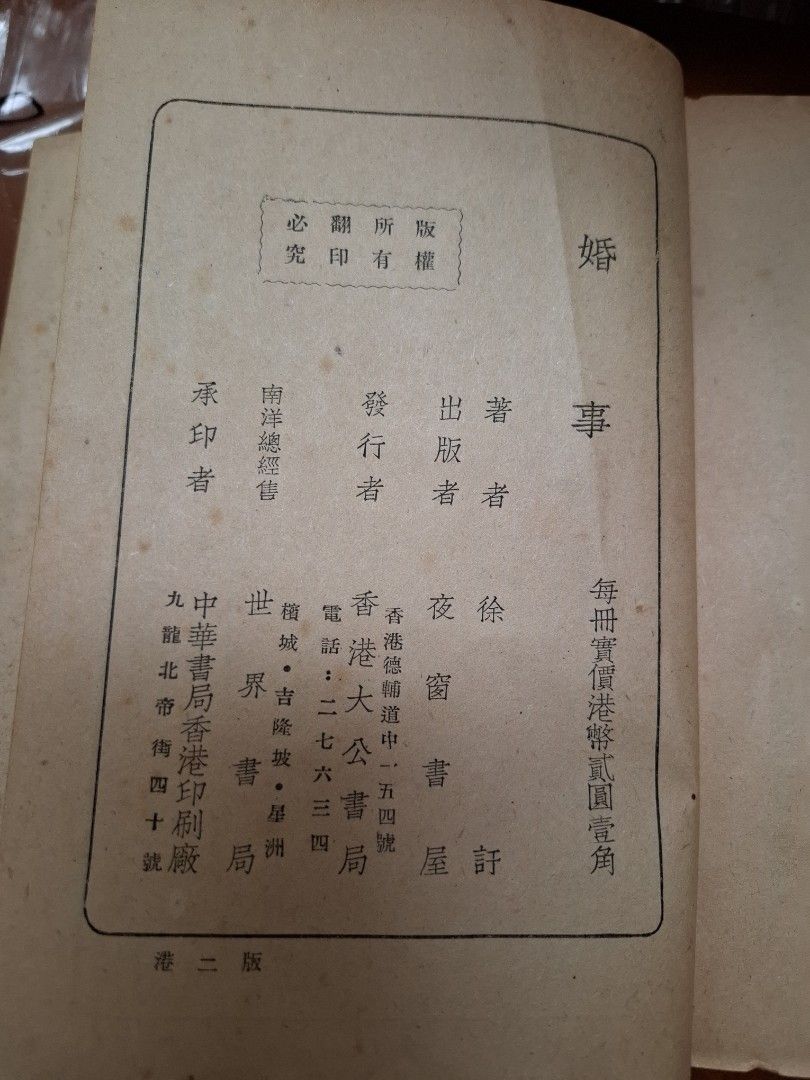 婚事
每冊實價港幣貳圓壹角
版權
所有
翻印
必究
著者 徐訏
出版者 夜窗書屋
香港德輔道中一五四號
發行者 香港大公書局
電話：二七六三四
檳城・吉隆坡・星洲
南洋總經售 世界書局
承印者 中華書局香港印刷廠
九龍北帝街四十號
港二版